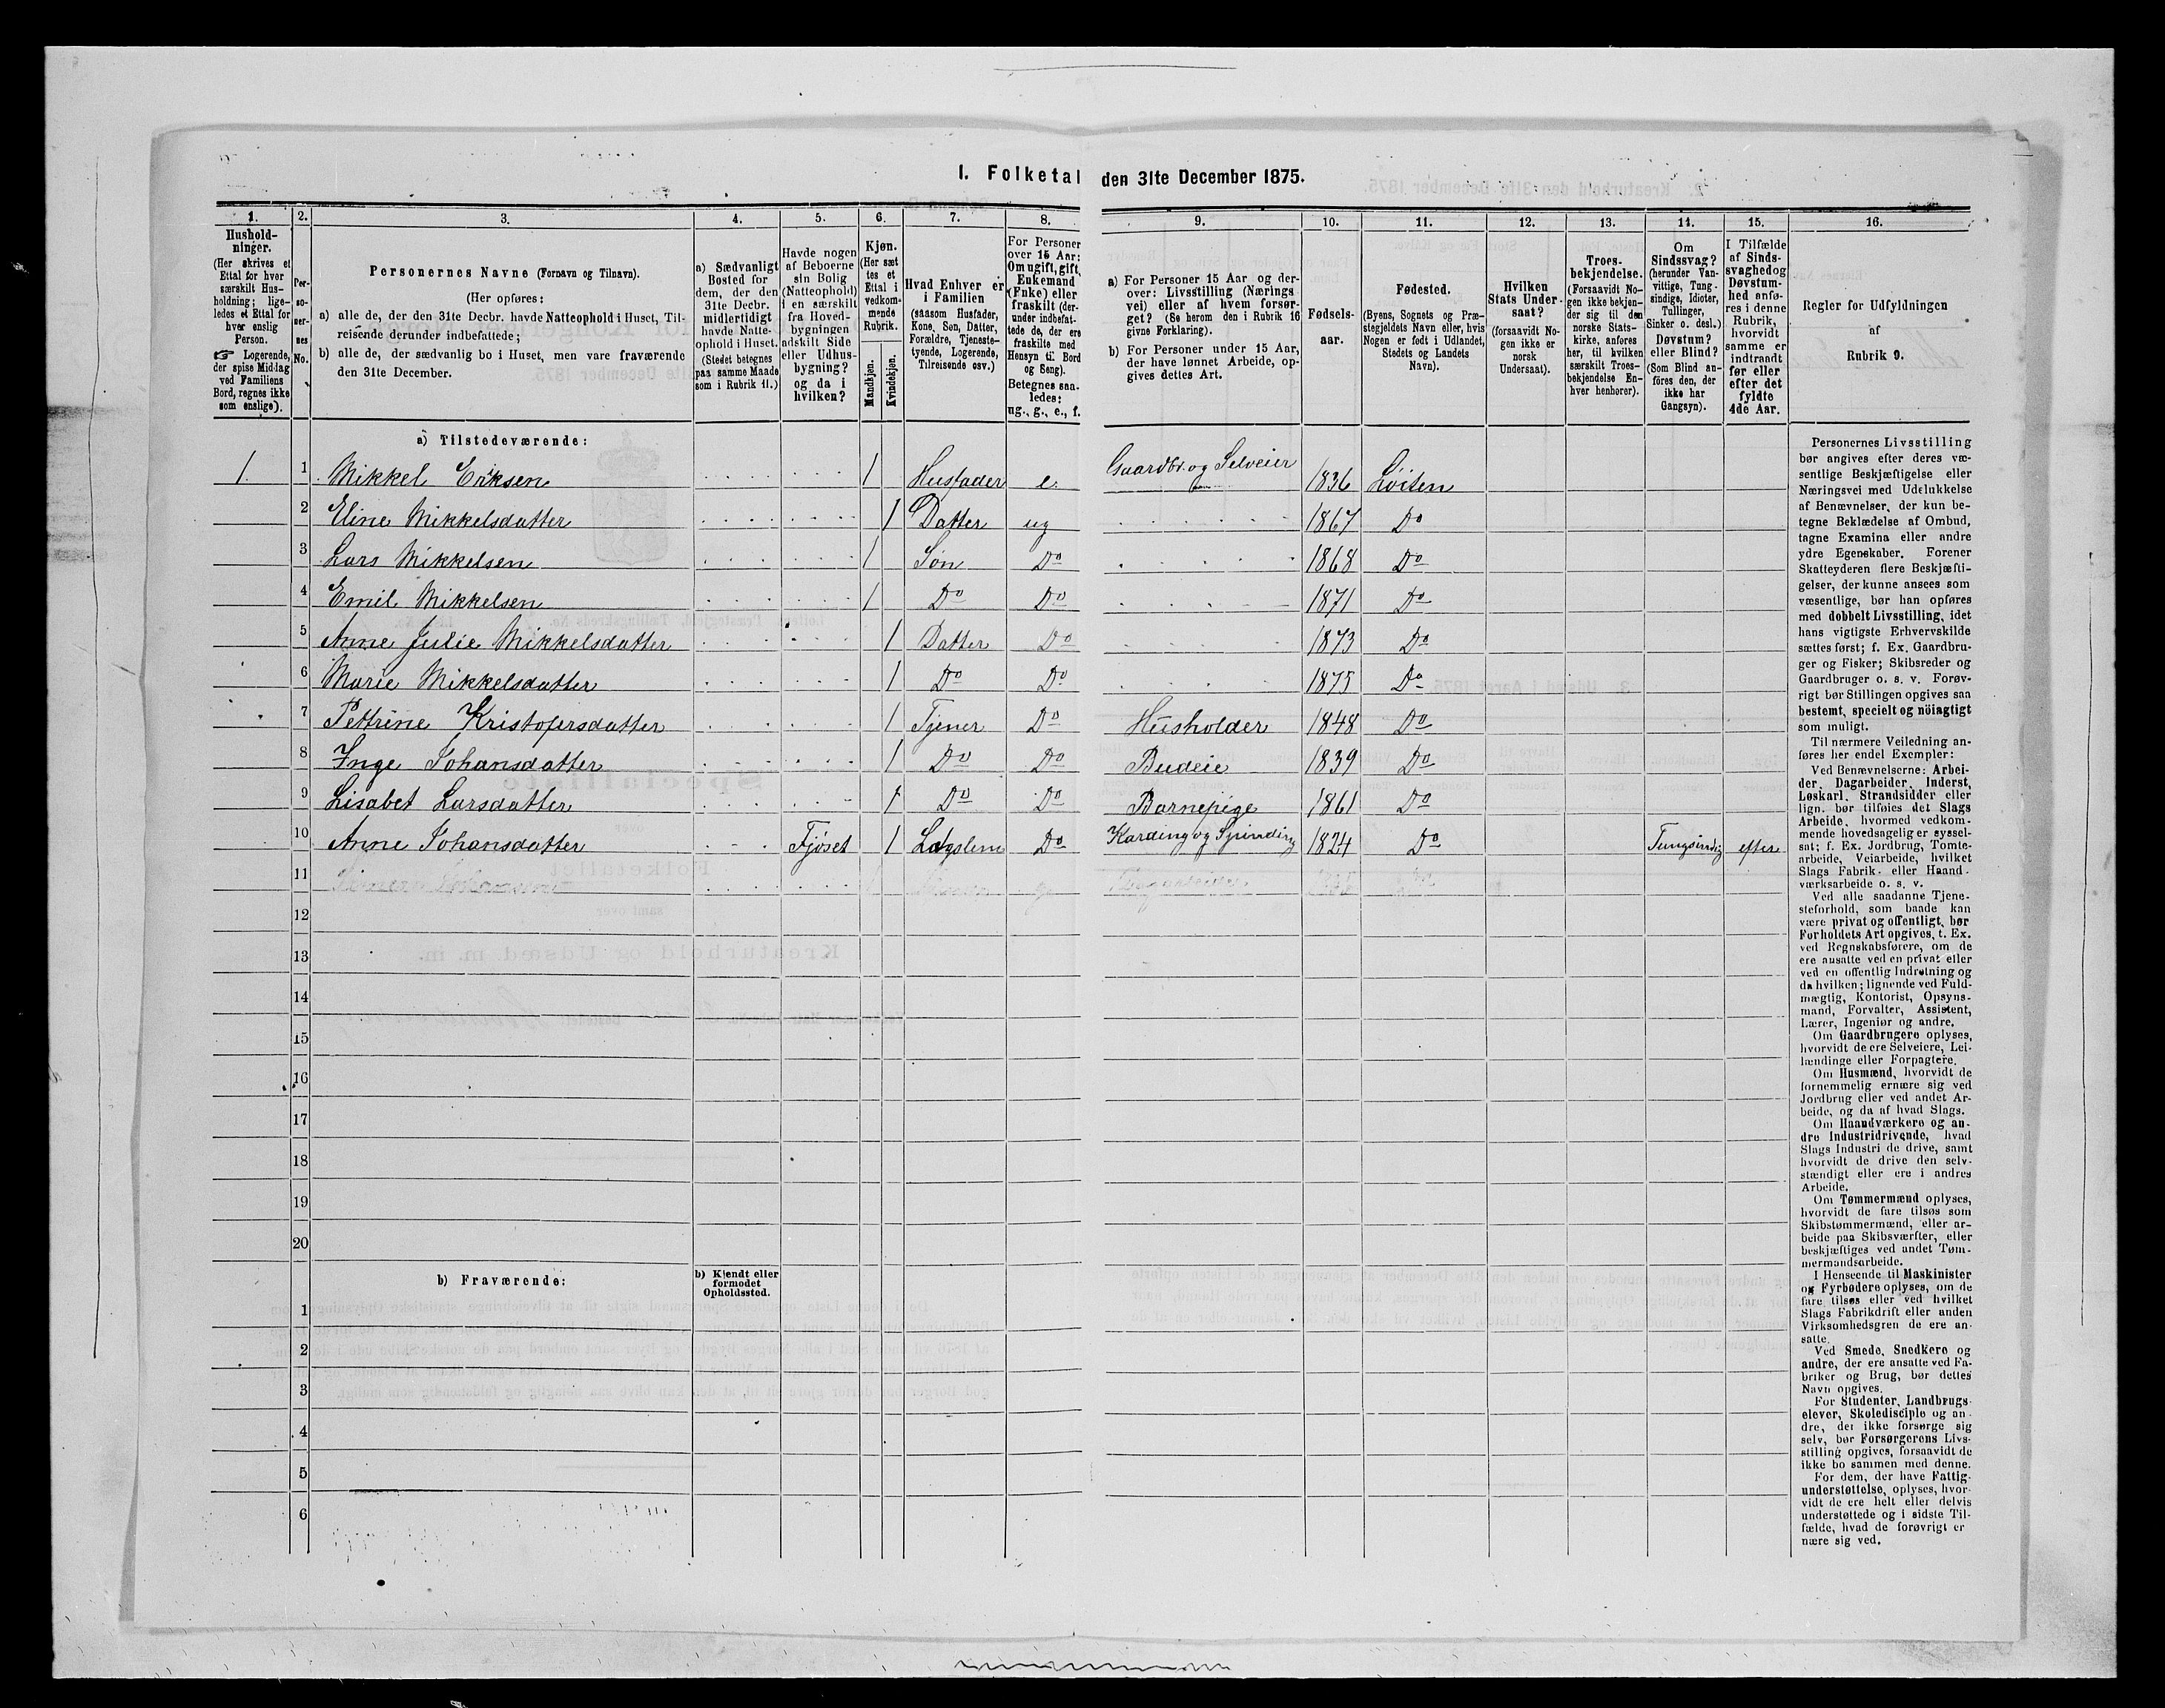 I. Folketal den 31te December 1875.
1.
Hushold-
ninger.
(Her skrives et
Ettal for hver
særskilt Hus-
holdning; lige-
ledes et Ettal for
hver enslig
Person.
☞ Logerende,
der spise Middag
ved Familiens
Bord, regnes ikke
som enslige).
2.
Per-
so-
ner-
nes
No.
3.
Personernes Navne (Fornavn og Tilnavn).
(Her opføres:
a) alle de, der den 31te Decbr. havde Natteophold i Huset, Til-
reisende derunder indbefattede;
b) alle de, der sædvanlig bo i Huset, men vare fraværende
den 31te December.
4.
a) Sædvanligt
Bosted for
dem, der den
31te Decbr.
midlertidigt
havde Natte-
ophold i Huset.
(Stedet betegnes
paa samme Maade
som i Rubrik 11.)
5.
Havde nogen
af Beboerne
sin Bolig
(Natteophold)
i en særskilt
fra Hoved-
bygningen
adskilt Side
eller Udhus-
bygning?
og da i
hvilken?
6.
Kjøn.
(Her sæt
tes et
Ettal i
vedkom-
mende
Rubrik.
Mandkjøn.
Kvindekjøn.
7.
Hvad Enhver er
i Familien
(saasom Husfader,
Kone, Søn, Datter,
Forældre, Tjeneste-
tyende, Logerende,
Tilreisende osv.)
8.
For Personer
over 15 Aar:
Om ugift, gift,
Enkemand
(Enke) eller
fraskilt (der-
under indbefat-
tede de, der ere
fraskilte med
Hensyn til Bord
og Seng).
Betegnes saa-
ledes:
ug., g., e., f.
9.
a) For Personer 15 Aar og der-
over: Livsstilling (Nærings
vei) eller af hvem forsør-
get? (Se herom den i Rubrik 16
givne Forklaring).
b) For Personer under 15 Aar,
der have lønnet Arbeide, op-
gives dettes Art.
10.
Fødsels-
aar.
11.
Fødested.
(Byens, Sognets og Præ-
stegjeldets Navn eller, hvis
Nogen er født i Udlandet,
Stedets og Landets
Navn).
12.
Hvilken
Stats Under-
saat?
(forsaavidt No-
gen ikke er
norsk
Undersaat).
13.
Troes-
bekjendelse.
(Forsaavidt No-
gen ikke bekjen-
der sig til den
norske Stats-
kirke, anføres
her, til hvilken
særskilt Troes-
bekjendelse En-
hver henhører).
14.
Om
Sindssvag?
(herunder Van-
vittige, Tung-
sindige, Idioter,
Tullinger,
Sinker o. desl.)
Døvstum?
eller Blind?
(Som Blind an-
føres den, der
ikke har
Gangsyn).
15.
I Tilfælde
af Sinds-
svaghedog
Døvstum-
hed anfø-
res i denne
Rubrik,
hvorvidt
samme er
indtraadt
før eller
efter det
fyldte
4de Aar.
16.
Regler for Udfyldningen
af
Rubrik 9.
a) Tilstedeværende:
1. 1 Mikkel Eriksen 1 Husfader e. Gaardbr. og Selveier 1836 Löiten
2 Eline Mikkelsdatter 1 Datter ug 1867 Do
3 Lars Mikkelsen 1 Søn Do 1868 Do
4 Emil Mikkelsen 1 Do Do 1871 Do
5 Anne Julie Mikkelsdatter 1 Datter Do 1873 Do
6 Marie Mikkelsdatter 1 Do Do 1875 Do
7 Pettrine Kristofersdatter 1 Tjener Do Husholder 1848 Do
8 Inge Johansdatter 1 Do Do Budeie 1839 Do
9 Lisabet Larsdatter 1 Do Do Barnepige 1861 Do
10 Anne Johansdatter Fjöset 1 Do Karding og Spinding 1824 Do Tungsindig efter
11
12
13
14
15
16
17
18
19
20
b) Fraværende:
b) Kjendt eller
formodet
Opholdssted.
1
2
3
4
5
6
Personernes Livsstilling
bør angives efter deres væ-
sentlige Beskjæftigelse eller
Næringsvei med Udelukkelse
af Benævnelser, der kun be-
tegne Beklædelse af Ombud,
tagne Examina eller andre
ydre Egenskaber. Forener
Skatteyderen flere Beskjæfti-
gelser, der kunne ansees som
væsentlige, bør han opføres
med dobbelt Livsstilling, idet
hans vigtigste Erhvervskilde
sættes først; f. Ex. Gaardbru-
ger og Fisker; Skibsreder og
Gaardbruger o. s. v. Forøv-
rigt bør Stillingen opgives saa
bestemt, specielt og nöiagtigt
som muligt.
Til nærmere Veiledning an-
føres her endel Exempler:
Ved Benævnelserne: Arbei-
der, Dagarbeider, Inderst,
Løskarl, Strandsidder eller
lign. bør tilføies det Slags
Arbeide, hvormed vedkom-
mende hovedsagelig er syssel-
sat; f. Ex. Jordbrug, Tomte-
arbeide, Veiarbeide, hvilket
Slags Fabrik- eller Haand-
værksarbeide o. s. v.
Ved alle saadanne Tjene-
steforhold, som baade kan
være privat og offentligt, bør
Forholdets Art opgives, t. Ex.
ved Regnskabsførere, om de
ere ansatte ved en privat eller
ved en offentlig Indretning og
da hvilken; lignende ved Fuld-
mægtig, Kontorist, Opsyns-
mand, Forvalter, Assistent,
Lærer, Ingeniør og andre.
Om Gaardbrugere oplyses,
hvorvidt de ere Selveiere, Lei-
lændinge eller Forpagtere.
Om Husmænd, hvorvidt de
fornemmelig ernære sig ved
Jordbrug eller ved andet Ar-
beide, og da af hvad Slags.
Om Haandværkere og an-
dre Industridrivende, hvad
Slags Industri de drive, samt
hvorvidt de drive den selv-
stændigt eller ere i andres
Arbeide.
Om Tømmermænd oplyses,
hvorvidt de fare tilsøs som
Skibstømmermænd, eller ar-
beide paa Skibsværfter, eller
beskjæftiges ved andet Tøm-
mermandsarbeide.
I Henseende til Maskinister
og Fyrbødere oplyses, om de
fare tilsøs eller ved hvilket
Slags Fabrikdrift eller anden
Virksomhedsgren de ere an-
satte.
Ved Smede, Snedkere og
andre, der ere ansatte ved Fa-
briker og Brug, bør dettes
Navn opgives.
For Studenter, Landbrugs-
elever, Skoledisciple og an-
dre, der ikke forsørge sig
selv, bør Forsørgerens Livs-
stilling opgives, forsaavidt de
ikke bo sammen med denne.
For dem, der have Fattig-
understøttelse, oplyses, hvor-
vidt de ere helt eller delvis
understøttede og i sidste Til-
fælde, hvad de forøvrigt er
nære sig ved.